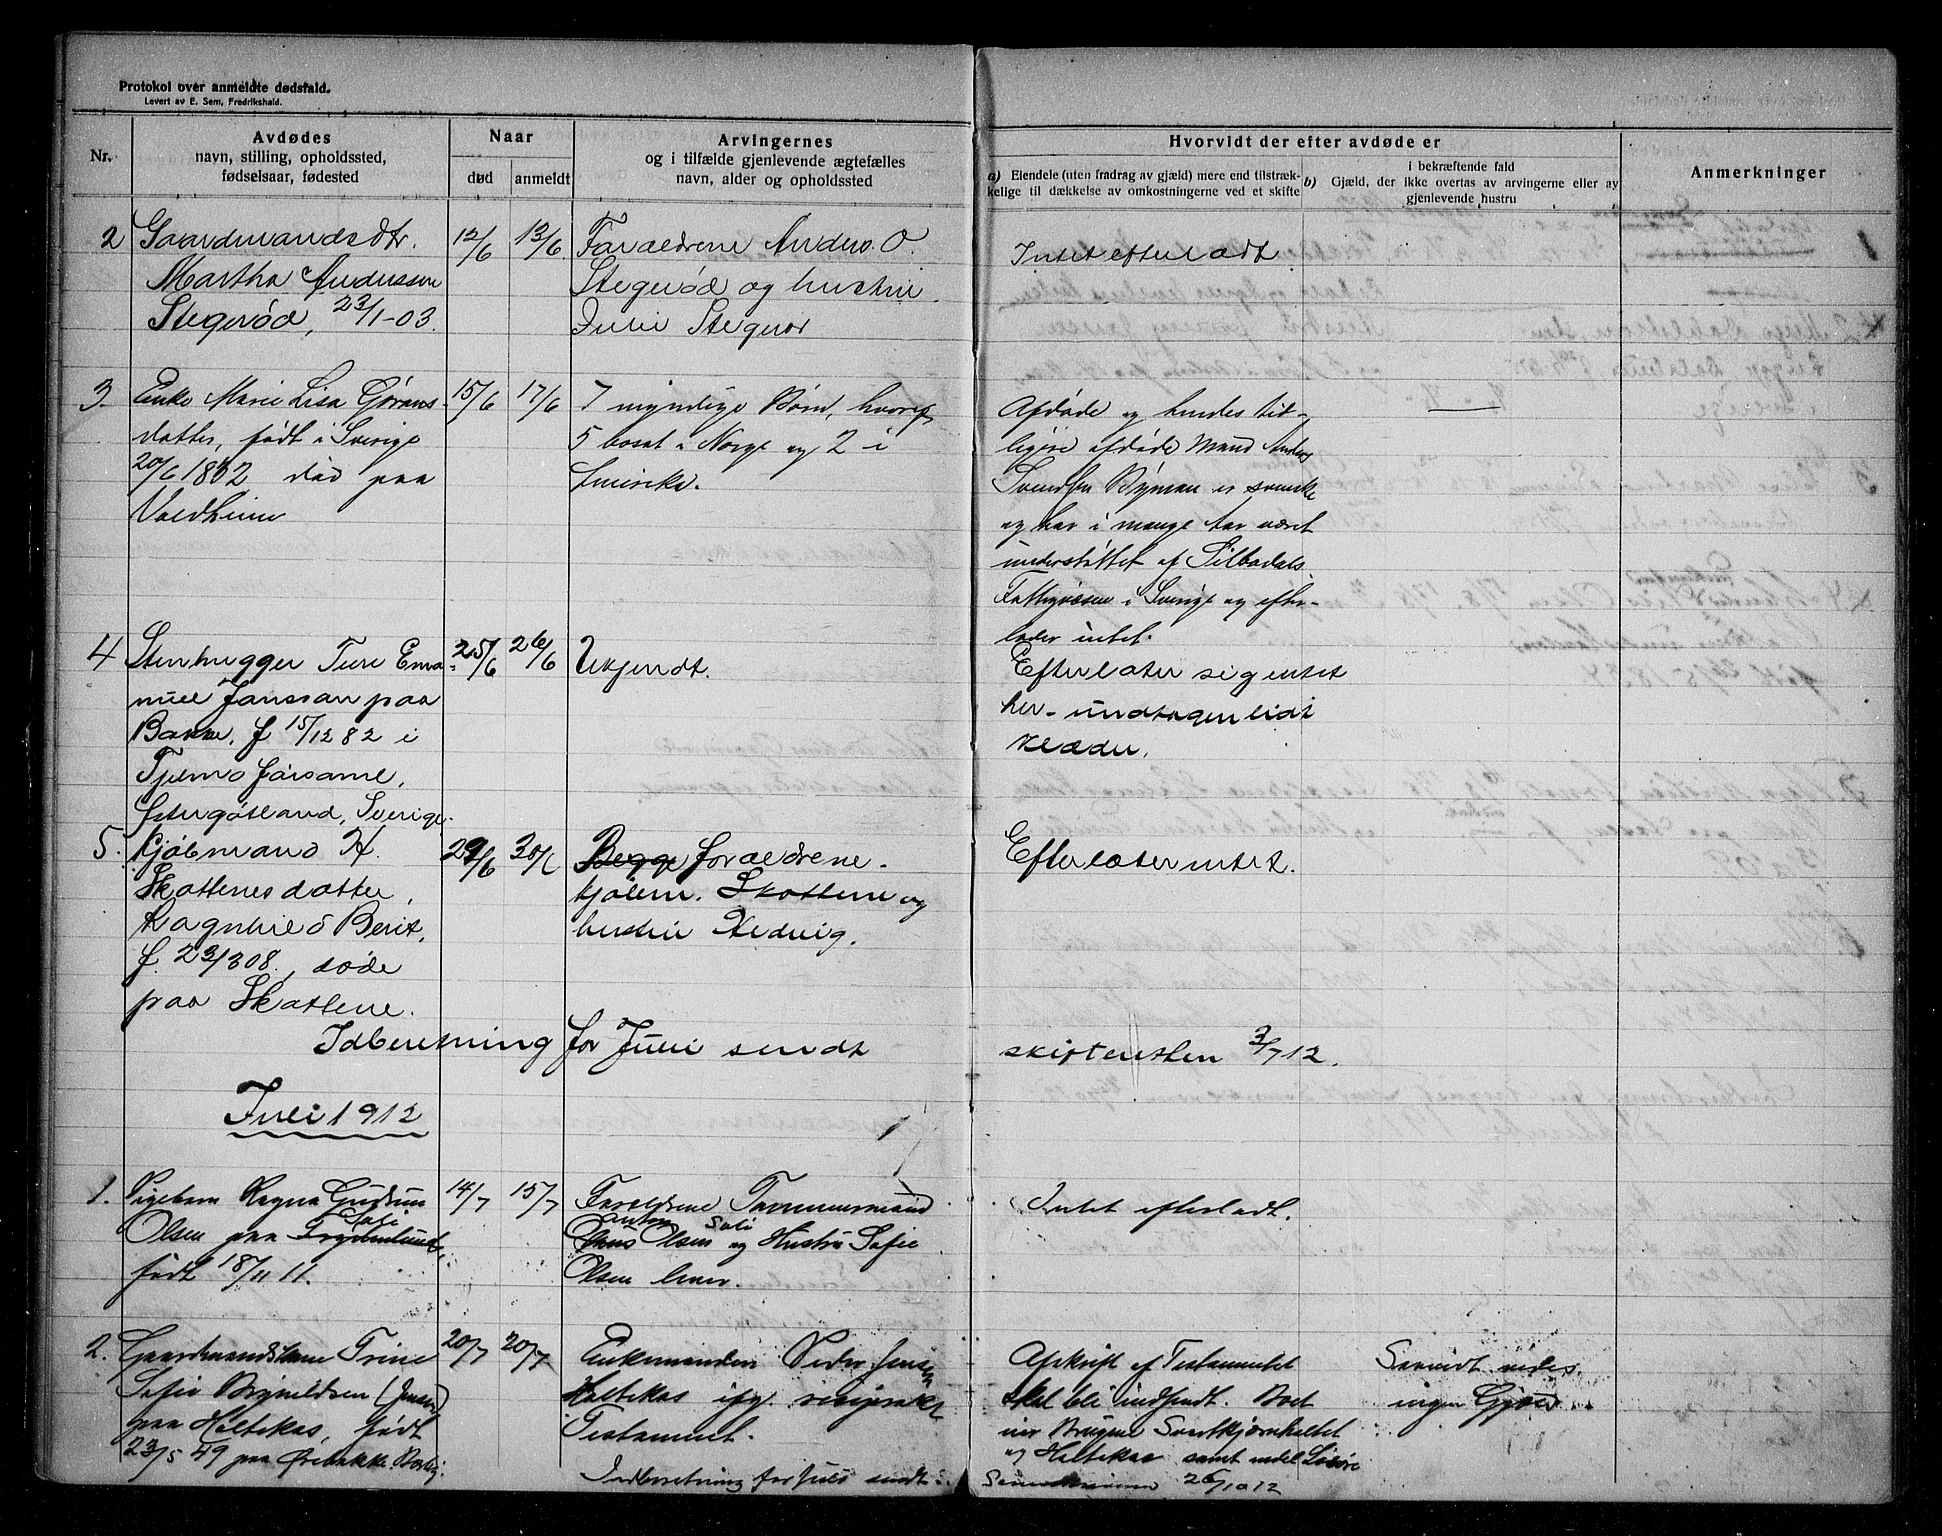 Protokol over anmeldte dødsfald.
Levert av E. Sem, Fredrikshald.
Nr.
Avdødes
navn, stilling, opholdssted,
fødselsaar, fødested
Naar
død
anmeldt
Arvingernes
og i tilfælde gjenlevende ægtefælles
navn, alder og opholdssted
Hvorvidt der efter avdøde er
a) Eiendele (uten fradrag av gjæld) mere end tilstræk-
kelige til dækkelse av omkostningerne ved et skifte
i bekræftende fald
b) Gjæld, der ikke overtas av arvingerne eller av
gjenlevende hustru
Anmerkninger
2
Gaardmandsdtr.
Martha Anderssen
Stegerød, 23/1-03.
12/6
13/6
Foraeldrene Anders O.
Stegerød og hustru
Julie Stegerød
Intet efterladt
3.
Enke Marie Lisa Görans-
datter, født i Sverige
20/6 1832 død paa
Voldheim
15/6
17/6
7 myndige Børn, hvoraf
5 bosat i Norge og 2 i
Amerika.
Afdøde og hendes tid-
ligere afdøde Mand Anders
Svendsen Byman er svenske
og har i mange Aar været
understøttet af Silbodals
Fattigvæsen i Sverige og efter-
lader intet.
4
Stenhugger Ture Ema-
nuel Janssan paa
Bakke, f 15/12 82 i
førsaml,
Østergøtland, Sverige.
25/6
26/6
Ukjendt.
Efterlater sig intet
her - undtagen lidt
klæder.
5.
Kjøbmand H.
Skottenes datter,
Ragnhild Berit,
f. 23/3 08., døde
paa Skottene.
29/6
30/6
Begge foraeldrene -
kjøbm. Skottene og
hustru Hedvig.
Efterlater intet.
Idberetning for Juli sendt skifteretten 3/7 12.
Juli 1912
1.
Pigebarn Ragna Gudrun
Sole
Olsen paa Frydenlund,
født 18/11 11.
14/7
15/7
Foraldrene Tømmermand
Anton Sole
Olsen og Hustru Sofie
Olsen lever.
Intet efterladt.
2.
Gaardmandskone Trine
Sofie Brynildsen (Jensen)
paa Holtekas, født
23/5 49 paa
20/7
20/7
Enkemanden Peder Jensen
Holtekas ifg. resiprokt
Testament.
Afskrift af Testamentet
skal bli indsendt. Boet
eier Brugene
og Holtekas samt endel Løsøre
Saavidt vides
ingen Gjæld.
Indberetning for juli sendt
Sorenskriveren 26/10 12